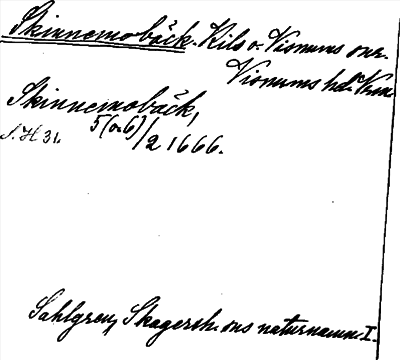 Skinnemobäck. Kils o. Visnums snr.
Visnums hd. Vrml.
Skinnemobäck,
J. H 31. 5(o.6)/2 1666.
Sahlgren, Skagersh. sns naturnamn I.